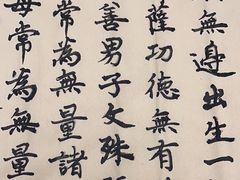 無邊出生一
薩功德無有
善男子文殊
常為無量諸
母常為無量